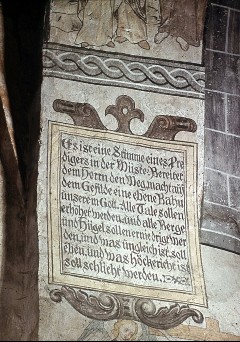 Es ist eine Stimme eines Pre
digers in der Wüste: Bereitet
dem Herrn den Weg, macht auf
dem Gefilde eine ebene Bahn
unserem Gott. Alle Tale sollen
erhöhet werden, und alle Berge
und Hügel sollen erniedrigt wer
den, und was ungleich ist, soll
eben, und was höckericht ist
soll schlicht werden.